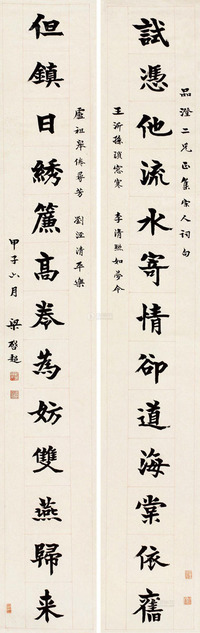 試憑他流水寄情卻道海棠依舊
品澄二兄正集宋人詞句
王沂孫瑣窗寒 李清照如夢令
但鎮日繡簾高卷為妨雙燕歸来
盧祖皋倦尋芳 劉澄清平樂
甲子六月 梁啟超